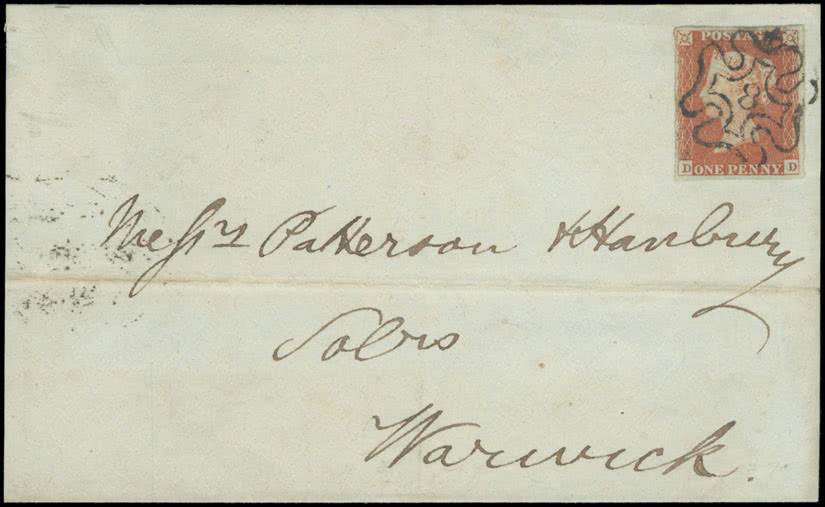 POSTAGE
8
D ONE PENNY D
Messrs Patterson & Hanbury
Solrs
Warwick.